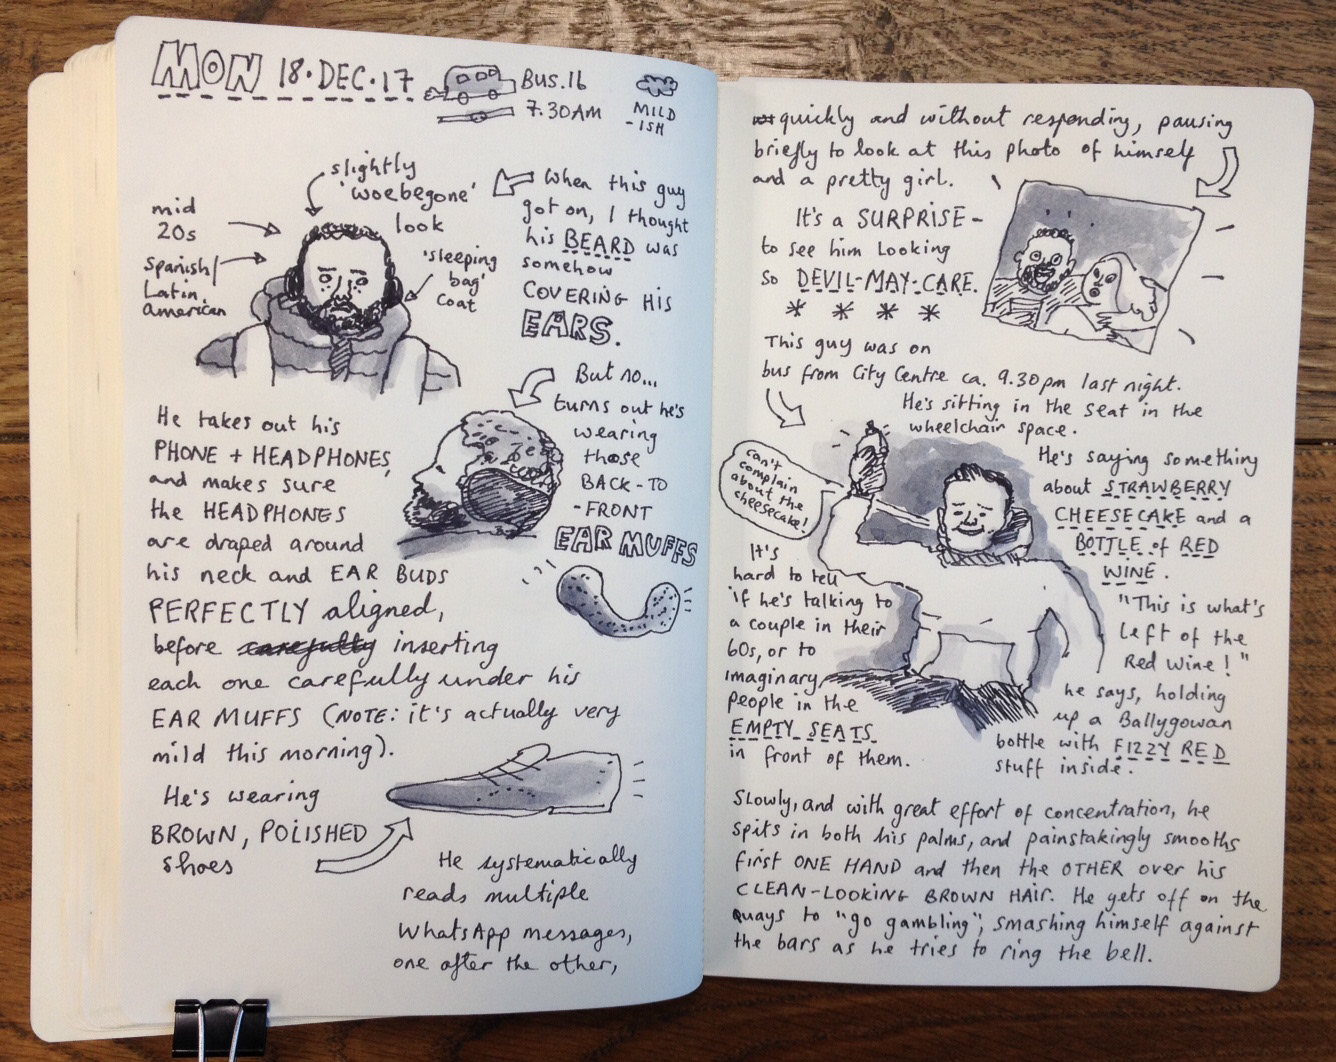 MON 18.DEC.17
BUS.16
7.30AM
MILD
-ISH
slightly
'woebegone'
look
mid
20s
Spanish/
Latin
american
'sleeping
bag'
coat
When this guy
got on, I thought
his BEARD was
somehow
COVERING HIS
EARS.
But no...
turns out he's
wearing
those
BACK-TO
-FRONT
EAR MUFFS
He takes out his
PHONE + HEADPHONES,
and makes sure
the HEADPHONES
are draped around
his neck and EAR BUDS
PERFECTLY aligned,
before carefully inserting
each one carefully under his
EAR MUFFS (NOTE: it's actually very
mild this morning).
He's wearing
BROWN, POLISHED
shoes
He systematically
reads multiple
WhatsApp messages,
one after the other,
quickly and without responding, pausing
briefly to look at this photo of himself
and a pretty girl.
It's a SURPRISE-
to see him Looking
so DEVIL-MAY-CARE.
* * * *
This guy was on
bus from City Centre ca. 9.30pm last night.
He's sitting in the seat in the
wheelchair space.
can't
complain
about the
cheesecake!
He's saying something
about STRAWBERRY
CHEESECAKE and a
BOTTLE of RED
WINE.
"This is what's
left of the
Red Wine!"
he says, holding
up a Ballygowan
bottle with FIZZY RED
stuff inside.
It's
hard to tell
if he's talking to
a couple in their
60s, or to
imaginary
people in the
EMPTY SEATS
in front of them.
Slowly, and with great effort of concentration, he
spits in both his palms, and painstakingly smooths
first ONE HAND and then the OTHER over his
CLEAN-LOOKING BROWN HAIR. He gets off on the
quays to "go gambling", smashing himself against
the bars as he tries to ring the bell.